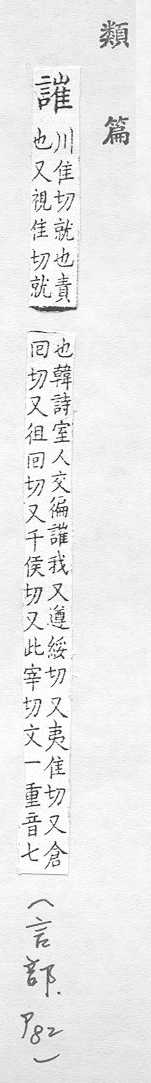 類篇
川隹切就也責
也又視隹切就
也韓詩室人交徧我又遵綏切又夷隹切又倉
回切又徂回切又千侯切又此宰切文一重音七
(言部. P82)